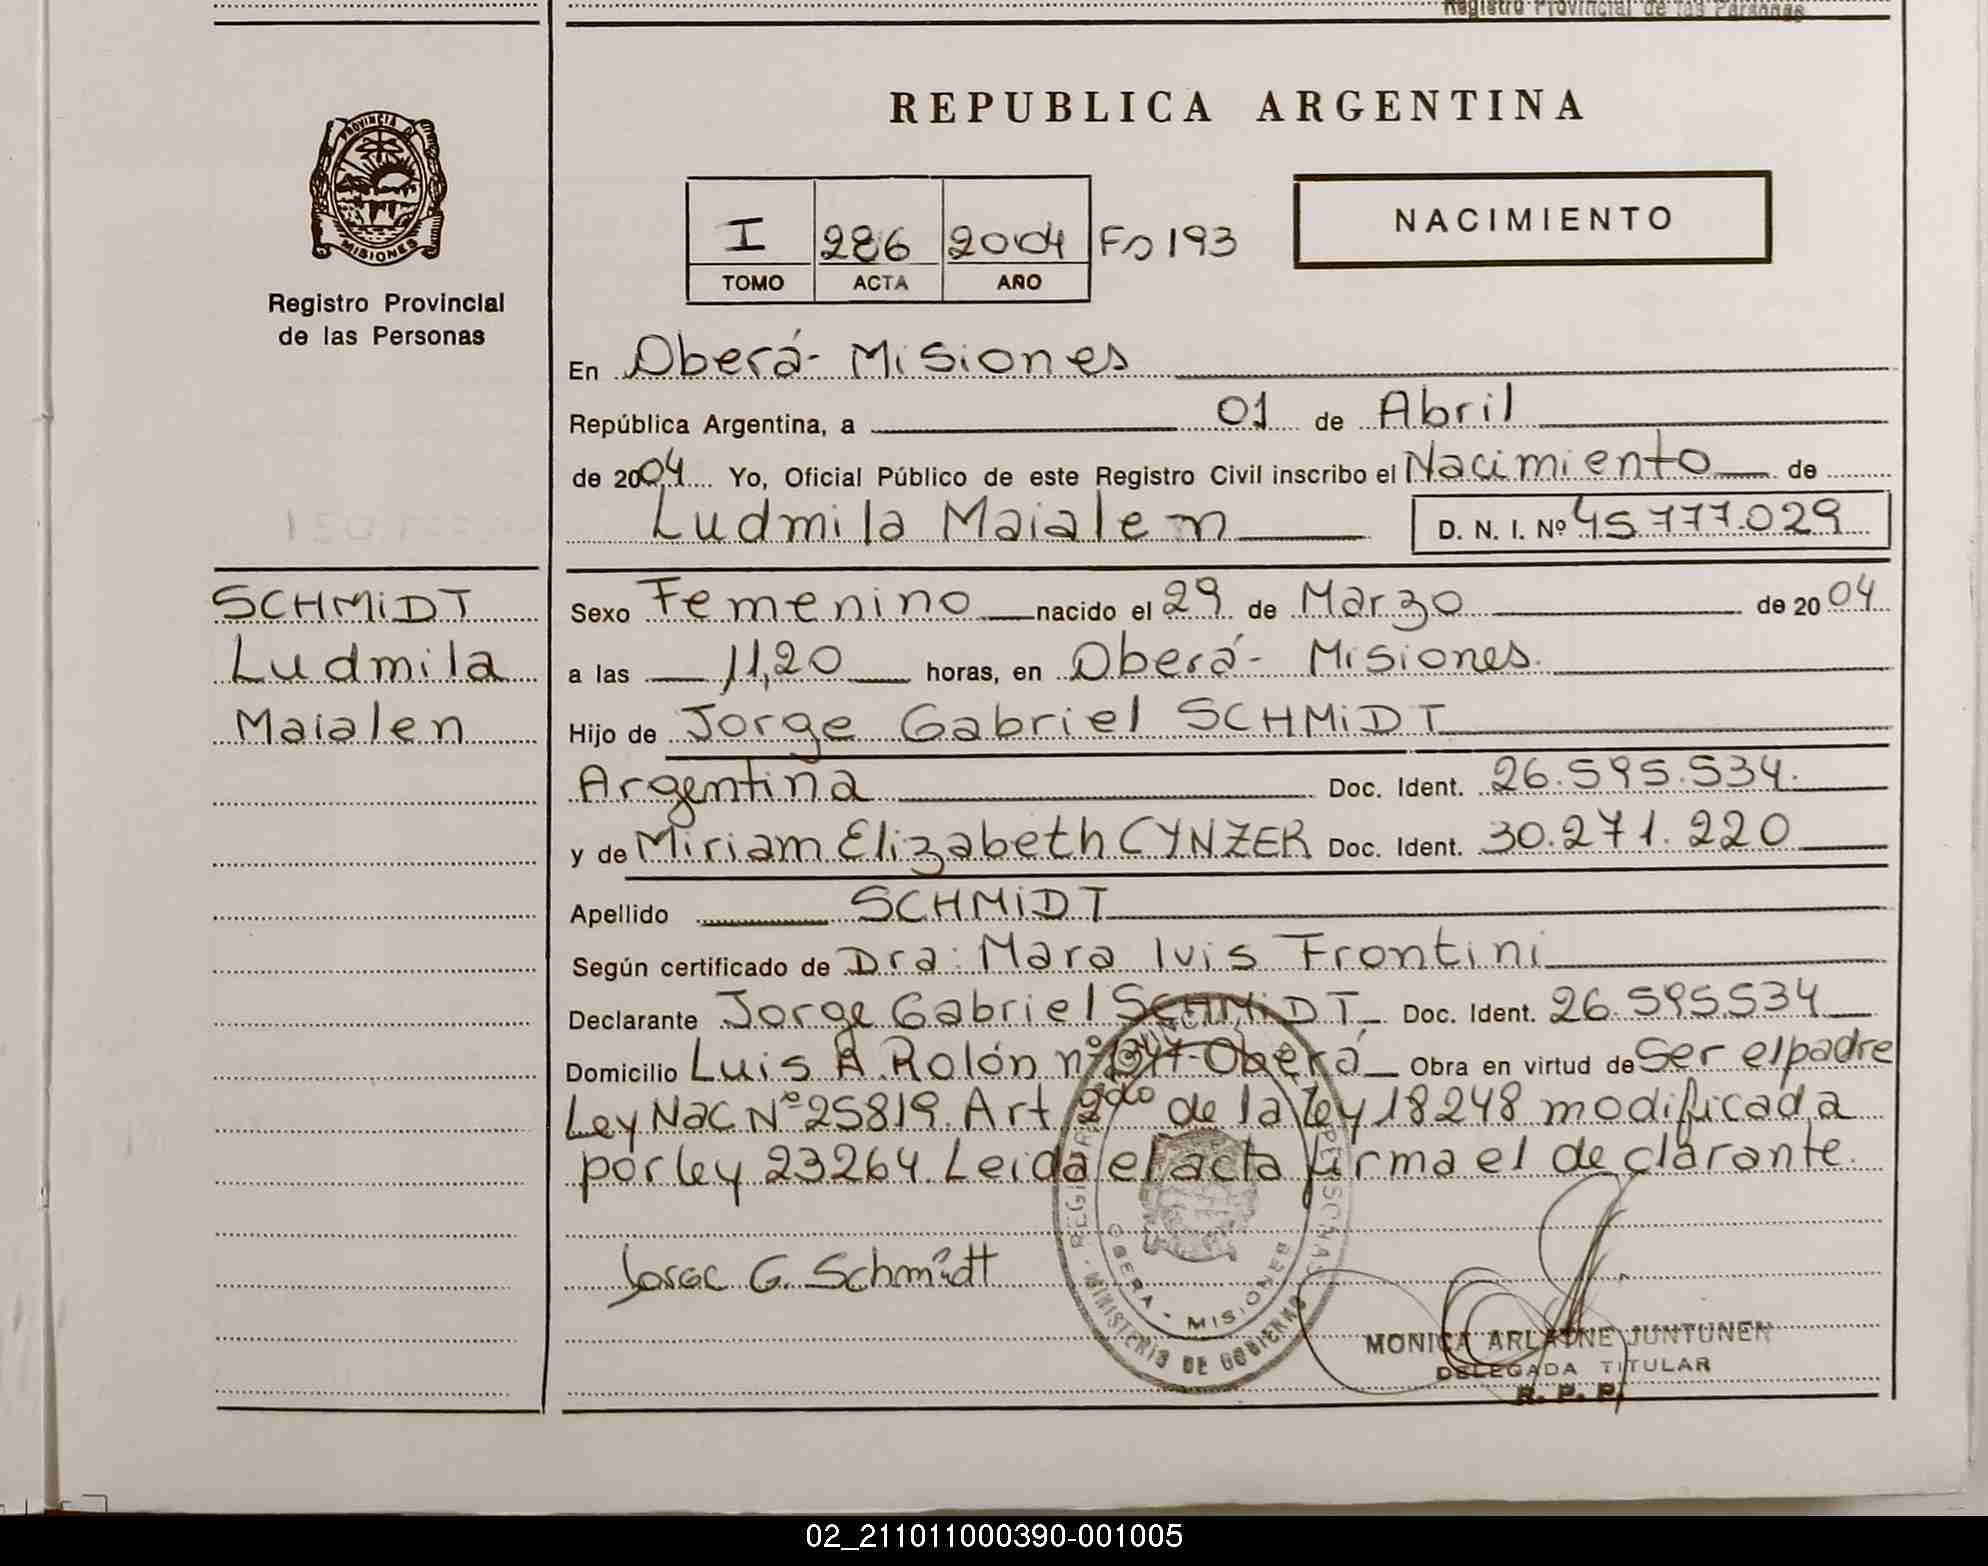 Registro Provincial de las Personas
REPUBLICA ARGENTINA
PROVINCIA D
MISIONES
Registro Provincial
de las Personas
I 286 2004 Fo 193
TOMO ACTA AÑO
NACIMIENTO
En Oberá - Misiones
República Argentina, a 01 de Abril
de 2004 Yo, Oficial Público de este Registro Civil inscribo el Nacimiento de
Ludmila Maialen D. N. I. Nº 45777.029
SCHMiDT
Ludmila
Maialen
Sexo Femenino nacido el 29 de Marzo de 2004
a las 11,20 horas, en Oberá - Misiones.
Hijo de Jorge Gabriel SCHMiDT
Argentina Doc. Ident. 26.595.534.
y de Miriam Elizabeth CYNZER Doc. Ident. 30.271.220
Apellido SCHMiDT
Según certificado de Dra: Mara luis Frontini
Declarante Jorge Gabriel SCHMiDT Doc. Ident. 26.595.534
Domicilio Luis A. Rolón nº Oberá Obra en virtud de Ser el padre
Ley Nac Nº 25819. Art 2do de la ley 18248 modificada
por ley 23264. Leida el acta firma el declarante.
G. Schmidt
OBERA - MISIONES
MINISTERIO DE GOBIERNO
MONICA ARLAINE JUNTUNEN
DELEGADA TITULAR
R. P. P.
02_211011000390-001005